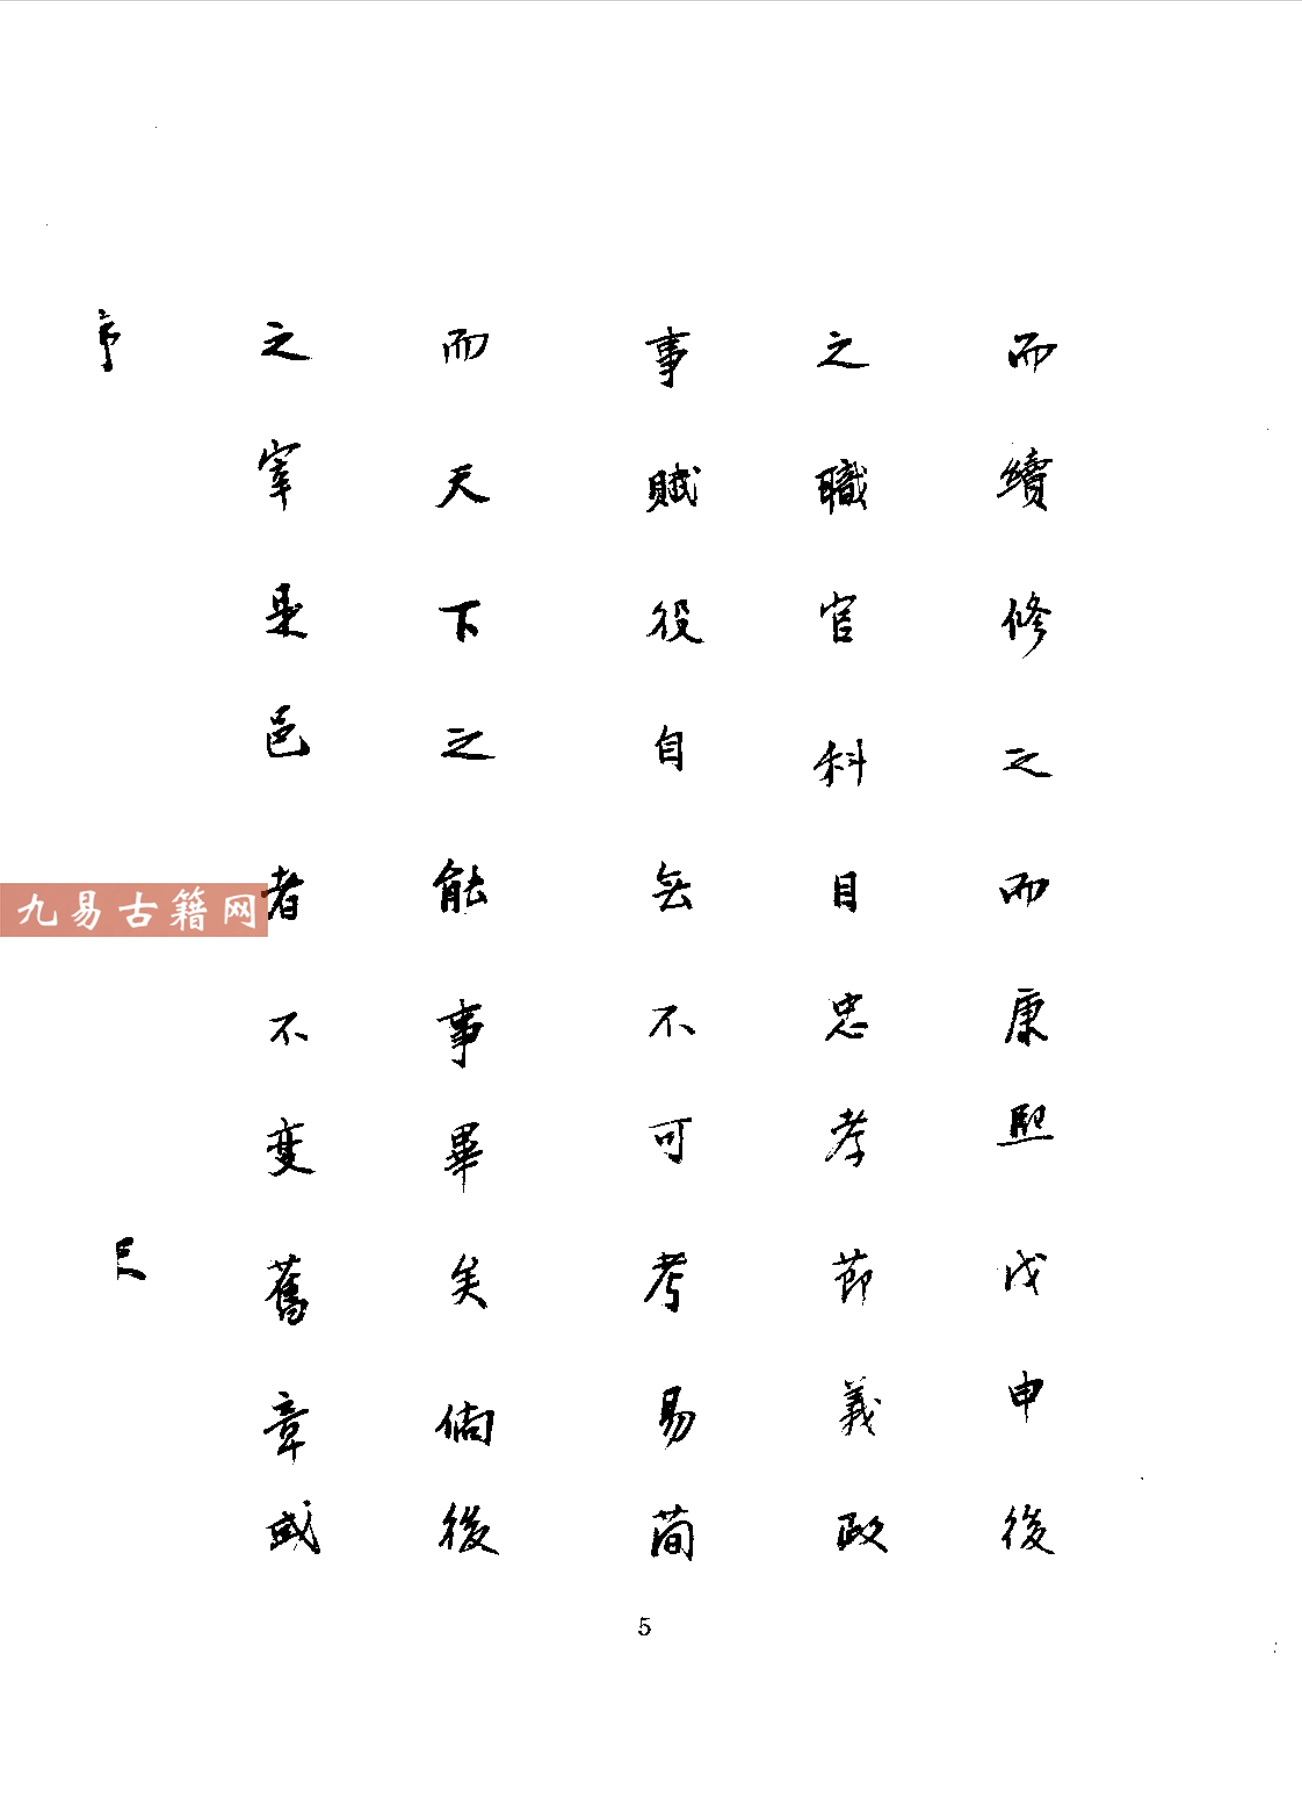 而續修之而康熙戊申後
之職官科目忠孝節義政
事賦役自無不可考易簡
而天下之能事畢矣倘後
之宰是邑者不變舊章或
序
九易古籍网
5